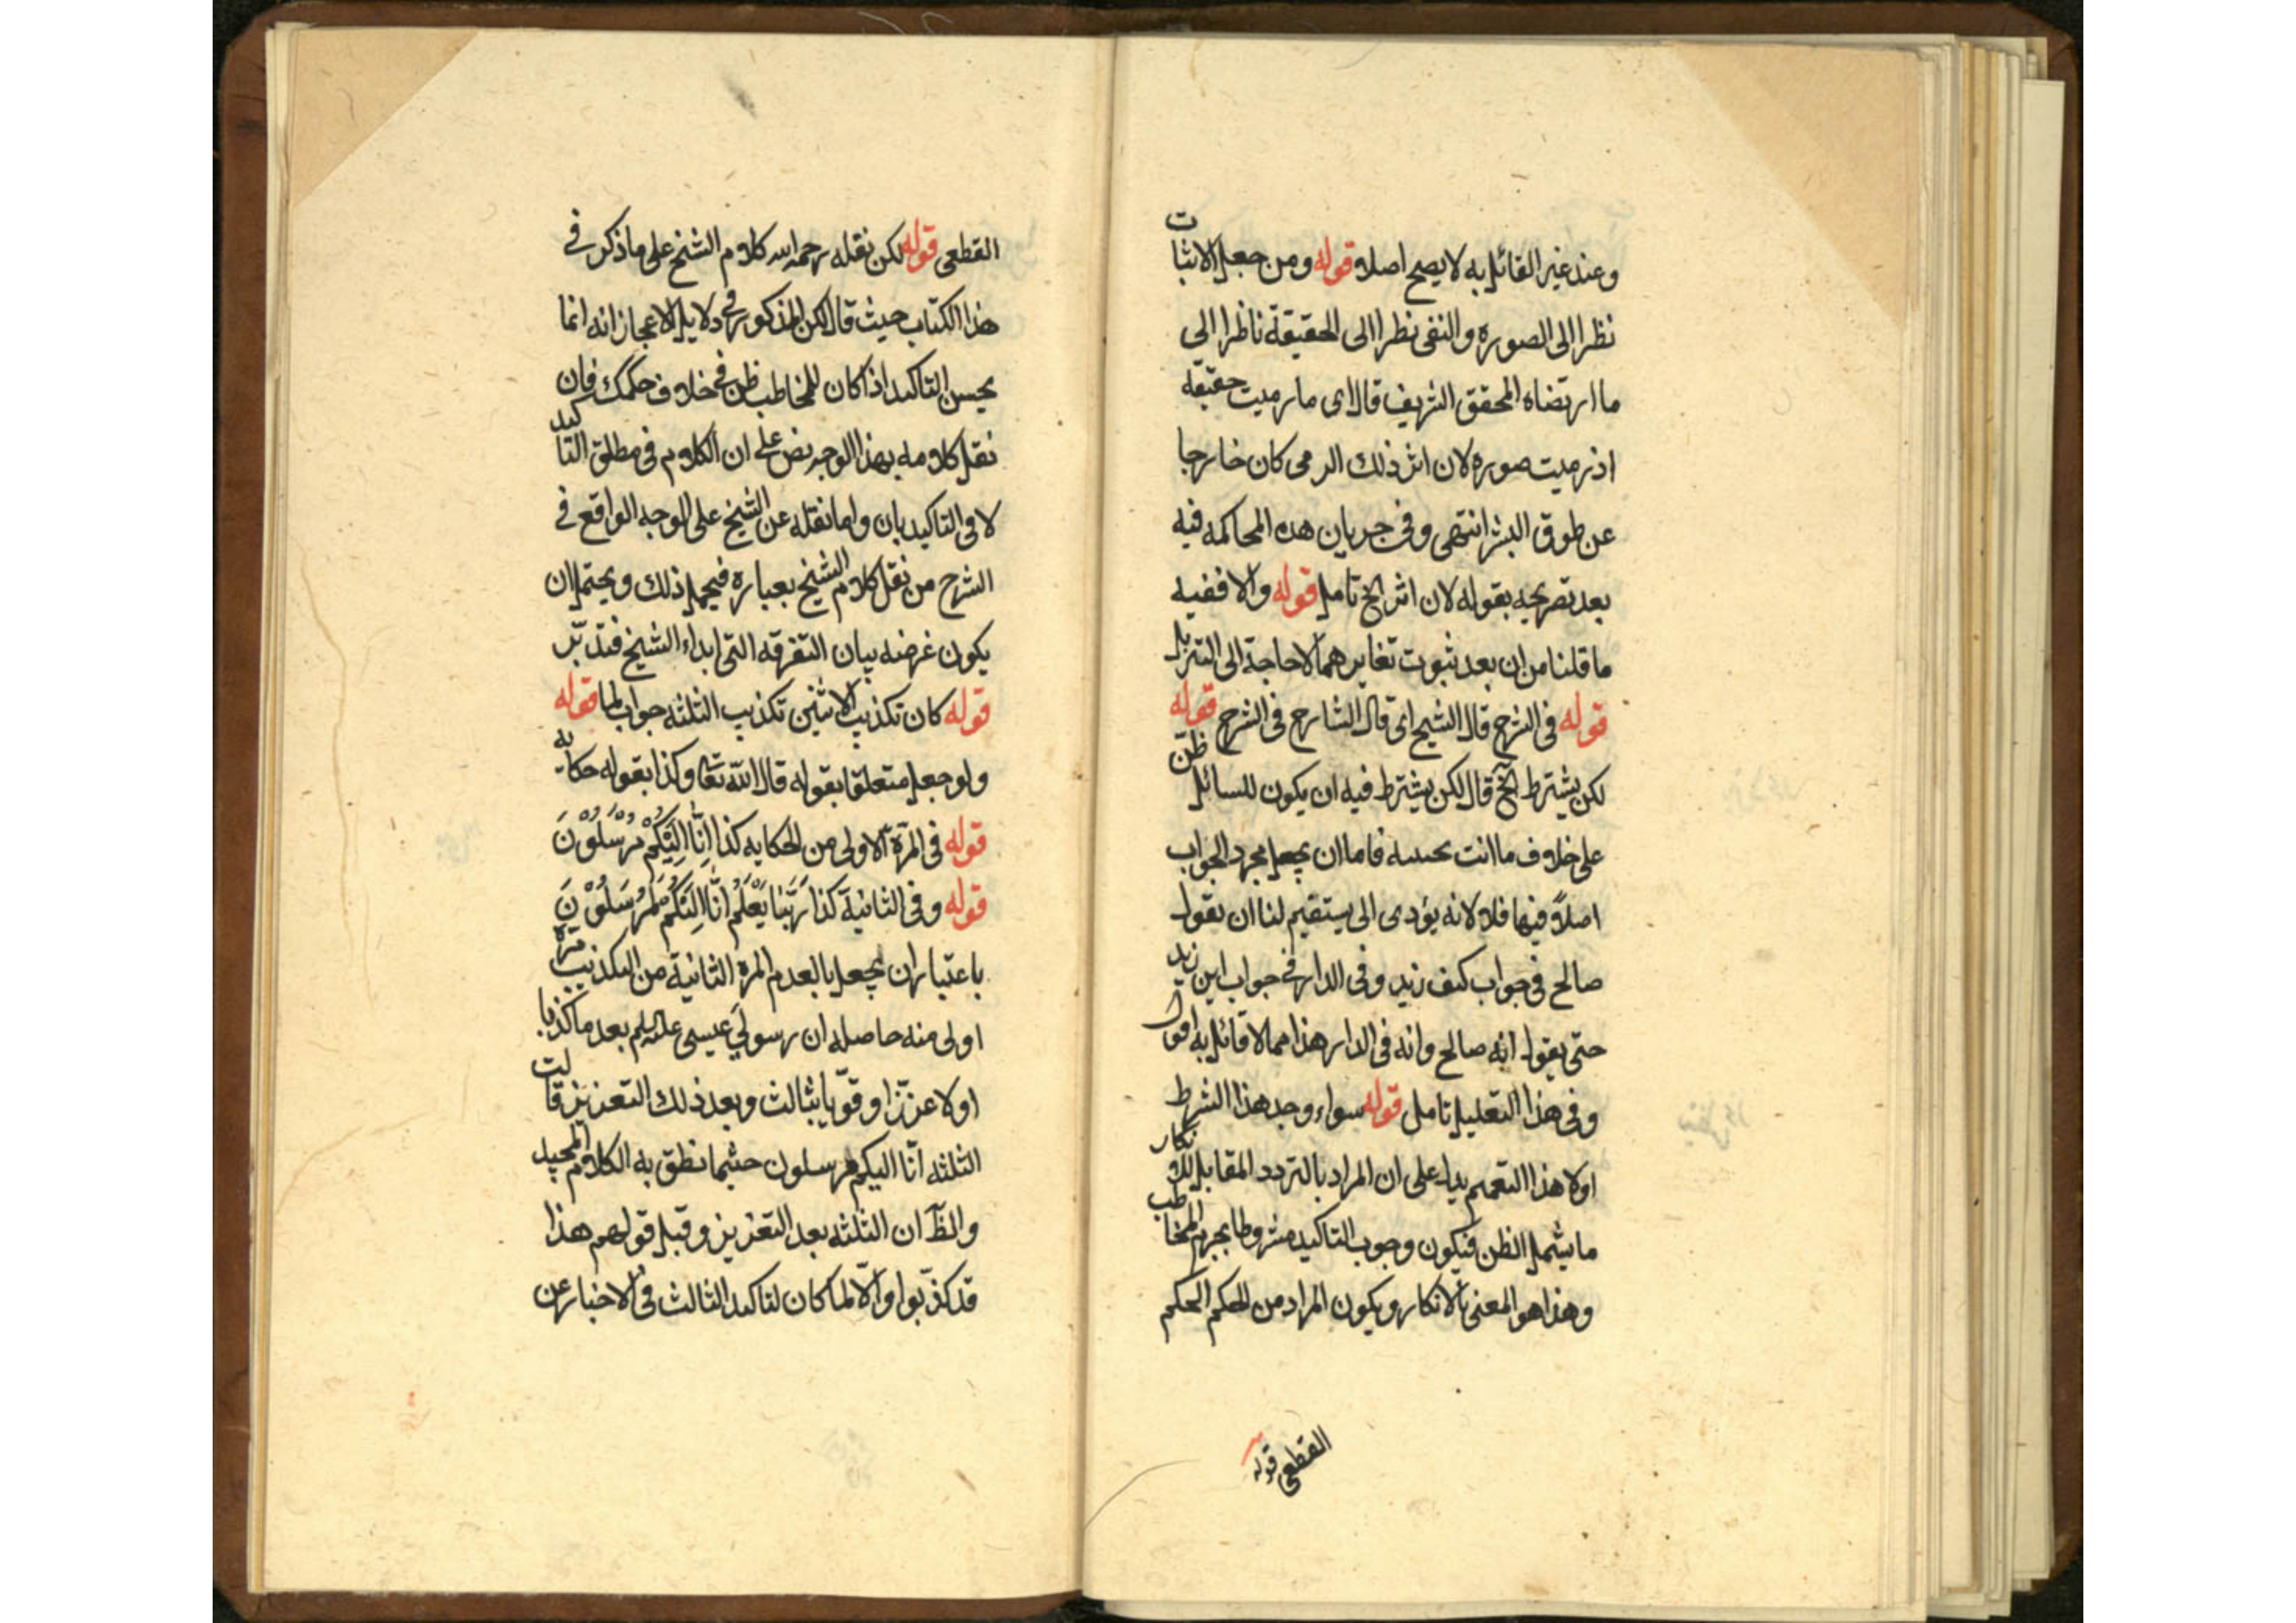 وعند غير القائل به لا يصح اصلا قوله ومن جعل الاثبات
نظرا الى الصوره والنفى نظرا الى الحقيقة ناظرا الى
ما ارتضاه المحقق الشريف قال اى ما رميت حقيقه
اذ رميت صوره لان اثر ذلك الرمى كان خارجا
عن طوق البشر انتهى وفى جريان هذه المحاكمه فيه
بعد تصريحه بقوله لان اثر الخ تامل قوله والا ففيه
ما قلنا من ان بعد ثبوت تغايرهما لا حاجة الى التنزيل
قوله فى الشرح قال الشيخ اى قال الشارح فى الشرح قوله
لكن يشترط الخ قال لكن يشترط فيه ان يكون للسائل ظنّ
على خلاف ما انت تجيبه فاما ان يجعل مجرد الجواب
اصلاً فيها فلا لانه يؤدى الى يستقيم لنا ان نقول
صالح فى جواب كيف زيد وفى الدار فى جواب اين زيد
حتى يقول انه صالح وانه فى الدار هذا مما لا قائل به اقول
وفى هذا التعليل تامل قوله سواء وجد هذا الشرط
اولا هذا التعميم بناء على ان المراد بالتردد المقابل للانكار
ما يشمل الظن فيكون وجوب التاكيد مشروطا بجزم المخاطب
وهذا هو المعنى بالانكار ويكون المراد من الحكم الحكم
القطعى قوله
القطعى قوله لكن نقله رحمه الله كلام الشيخ على ما ذكر فى
هذا الكتاب حيث قال لكن المذكور فى دلايل الاعجاز انه انما
يحسن التاكيد اذا كان للمخاطب ظن فى خلاف حكمك فان
نقل كلامه بهذا الوجه نص على ان الكلام فى مطلق التاكيد
لا فى التاكيد بان واما نقله عن الشيخ على الوجه الواقع فى
الشرح من نقل كلام الشيخ بعباره فيحمل ذلك ويحتمل ان
يكون غرضه بيان التفرقه التى ابداء الشيخ فتدبّر
قوله كان تكذيب الاثنين تكذيب الثلثه جواب لما قوله
ولو جعل متعلقا بقوله قال الله تعا وكذا بقوله حكايه
قوله فى المرّة الاولى من الحكايه كذا اِنَّا اِلَيْكُمْ مُرْسَلُوْنَ
قوله وفى الثانية كذا رَبُّنَا يَعْلَمُ اِنَّا اِلَيْكُمْ لَمُرْسَلُوْنَ
باعتبار ان يجعل بالعدم المرة الثانية من التكذيب مرّة
اولى منه حاصله ان رسولَي عيسى عليه السلم بعد ما كذبا
اولا عزّزا وقوّيا بثالث وبعد ذلك التعزيز قالت
الثلثه انّا اليكم مرسلون حيثما نطق به الكلام المجيد
والظّ ان الثلثه بعد التعزيز وقبل قولهم هذا
قد كذّبوا والّا لما كان لتاكيد الثالث فى الاخبار عن